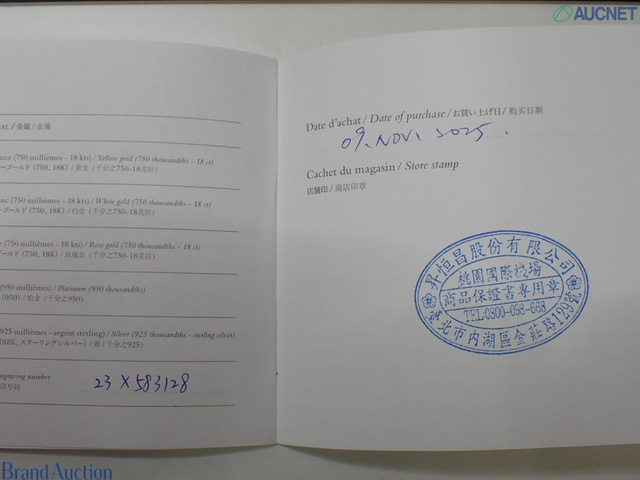 AUCNET
AL / 金属 / 金属
ne (750 millièmes - 18 kts) / Yellow gold (750 thousandths - 18 ct)
ーゴールド (750, 18K) / 黄金 (千分之750-18克拉)
nc (750 millièmes - 18 kts) / White gold (750 thousandths - 18 ct)
ゴールド (750, 18K) / 白金 (千分之750-18克拉)
e (750 millièmes - 18 kts) / Rose gold (750 thousandths - 18 ct)
ールド (750, 18K) / 玫瑰金 (千分之750-18克拉)
950 millièmes) / Platinum (950 thousandths)
(950) / 铂金 (千分之950)
925 millièmes - argent sterling) / Silver (925 thousandths - sterling silver)
(925, スターリングシルバー) / 银 (千分之925)
ngraving number
印号码
23 X 583128
Date d'achat / Date of purchase / お買い上げ日 / 购买日期
09. NOV. 2025.
Cachet du magasin / Store stamp
店舗印 / 商店印章
昇恒昌股份有限公司
桃園國際機場
商品保證書專用章
TEL:0800-098-668
臺北市內湖區金莊路129號
Brand Auction